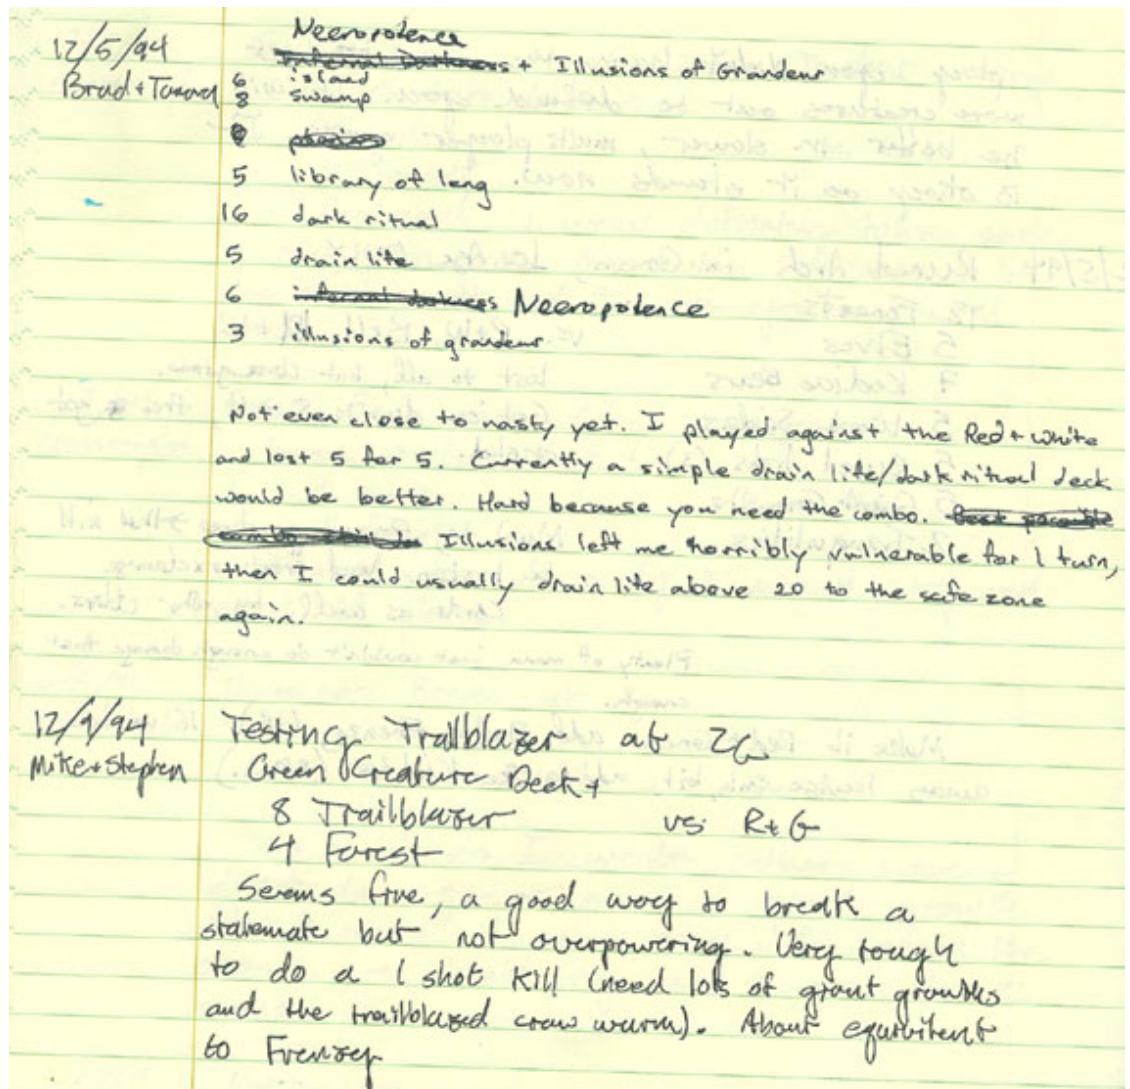 12/5/94
Brad + Tamara
Necropotence
Infernal Darkness + Illusions of Grandeur
6 island
8 swamp
plains
5 library of leng
16 dark ritual
5 drain life
6 infernal darkness Necropotence
3 illusions of grandeur
Not even close to nasty yet. I played against the Red + white
and lost 5 for 5. Currently a simple drain life/dark ritual deck
would be better. Hard because you need the combo. Best possible
combo Illusions left me horribly vulnerable for 1 turn,
then I could usually drain life above 20 to the safe zone
again.
12/9/94
Mike + Stephen
Testing Trailblazer at 2G
Green Creature Deck +
8 Trailblazer vs. R+G
4 Forest
Seems fine, a good way to break a
stalemate but not overpowering. Very tough
to do a 1 shot Kill (need lots of giant growths
and the trailblazed craw wurm). About equivilent
to Frenzy